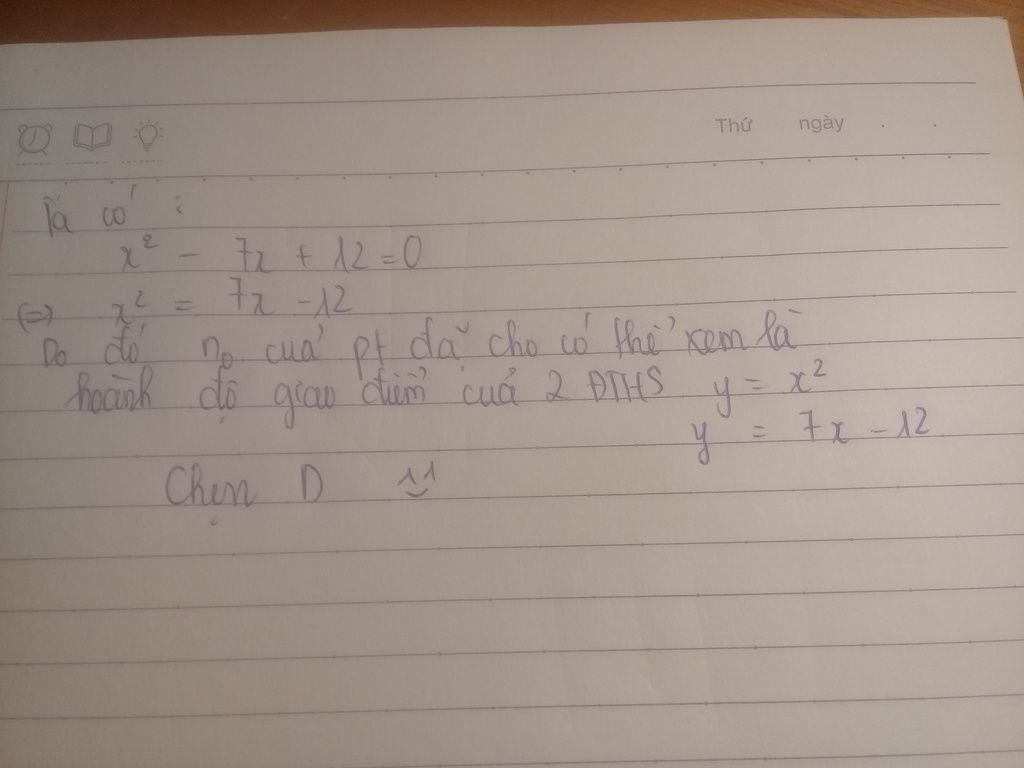 Thứ ngày
Ta có :
x² - 7x + 12 = 0
(=) x² = 7x - 12
Do đó no của pt đã cho có thể xem là
hoành độ giao điểm của 2 ĐTHS y = x²
y = 7x - 12
Chọn D